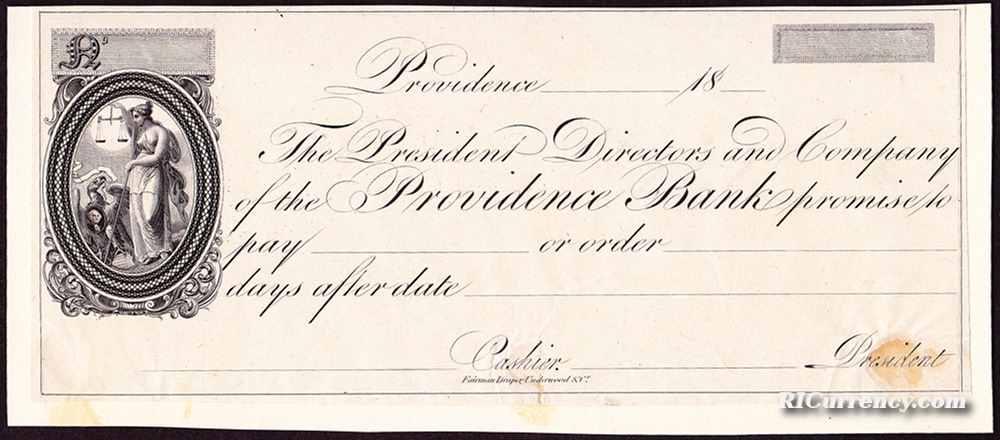 Nº
Providence 18
The President Directors and Company
of the Providence Bank promise to
pay or order
days after date
Cashier. President
Fairman Draper Underwood & Co.
RICurrency.com